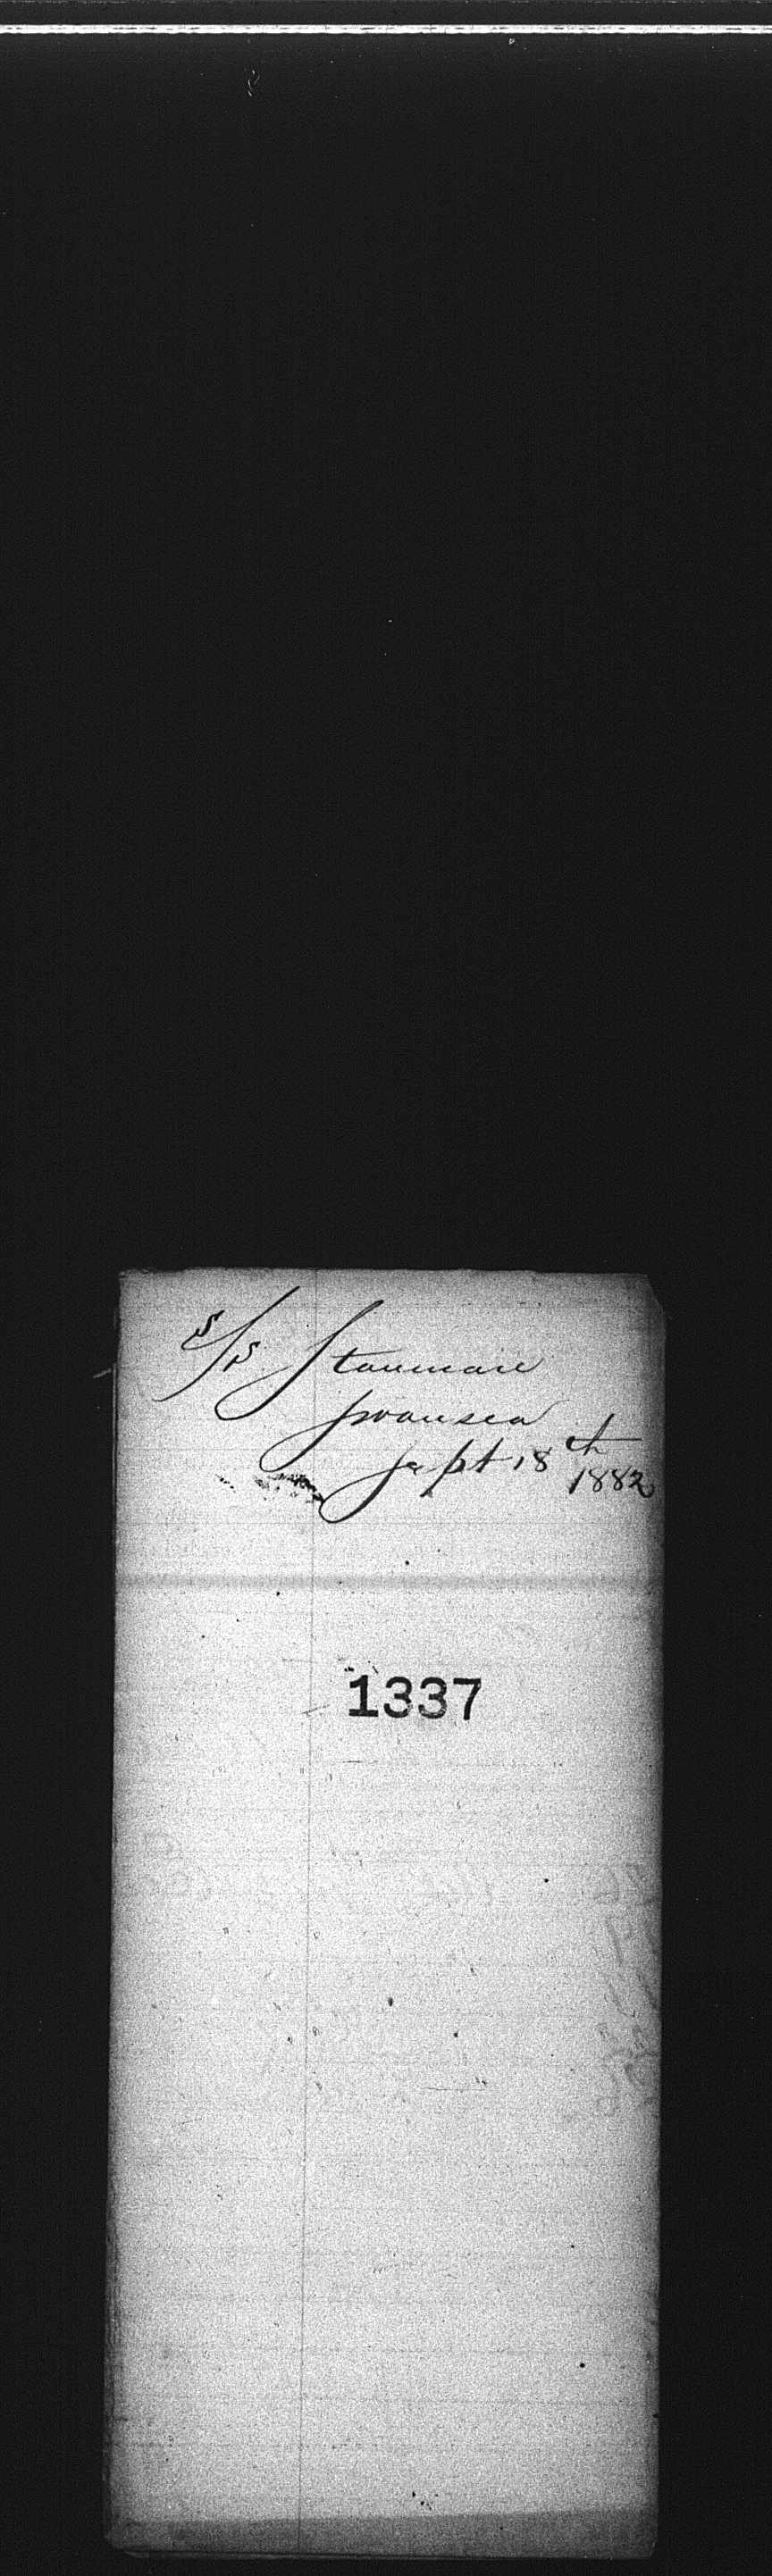 S/S Stanmore
Swansea
Sept 18th
1882
1337